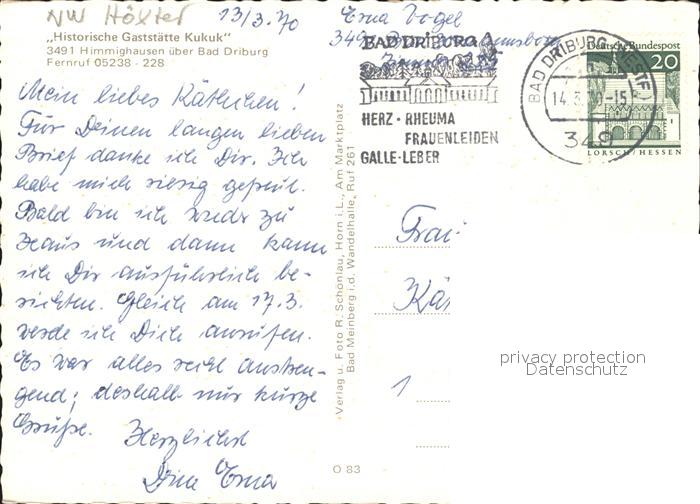 NW Höxter
13/3.70
Erna Vogel
349
„Historische Gaststätte Kukuk“
3491 Himmighausen über Bad Driburg
Fernruf 05238 - 228
Mein liebes Käthchen!
Für Deinen langen lieben
Brief danke ich Dir. Ich
habe mich riesig gefreut.
Bald bin ich wieder zu
Haus und dann kann
ich Dir ausführlich be-
richten. Gleich am 17.3.
werde ich Dich anrufen.
Es war alles recht anstren-
gend; deshalb nur kurze
Grüße.
Herzlichst
Dine Erna
Verlag u. Foto R. Schönlau, Horn i.L., Am Marktplatz
Bad Meinberg i.d. Wandelhalle, Ruf 261
O 83
BAD DRIBURG
HERZ · RHEUMA
FRAUENLEIDEN
GALLE·LEBER
BAD DRIBURG
14.3.70-15
349
Deutsche Bundespost
20
LORSCH/HESSEN
Frau
Kä
1
privacy protection
Datenschutz